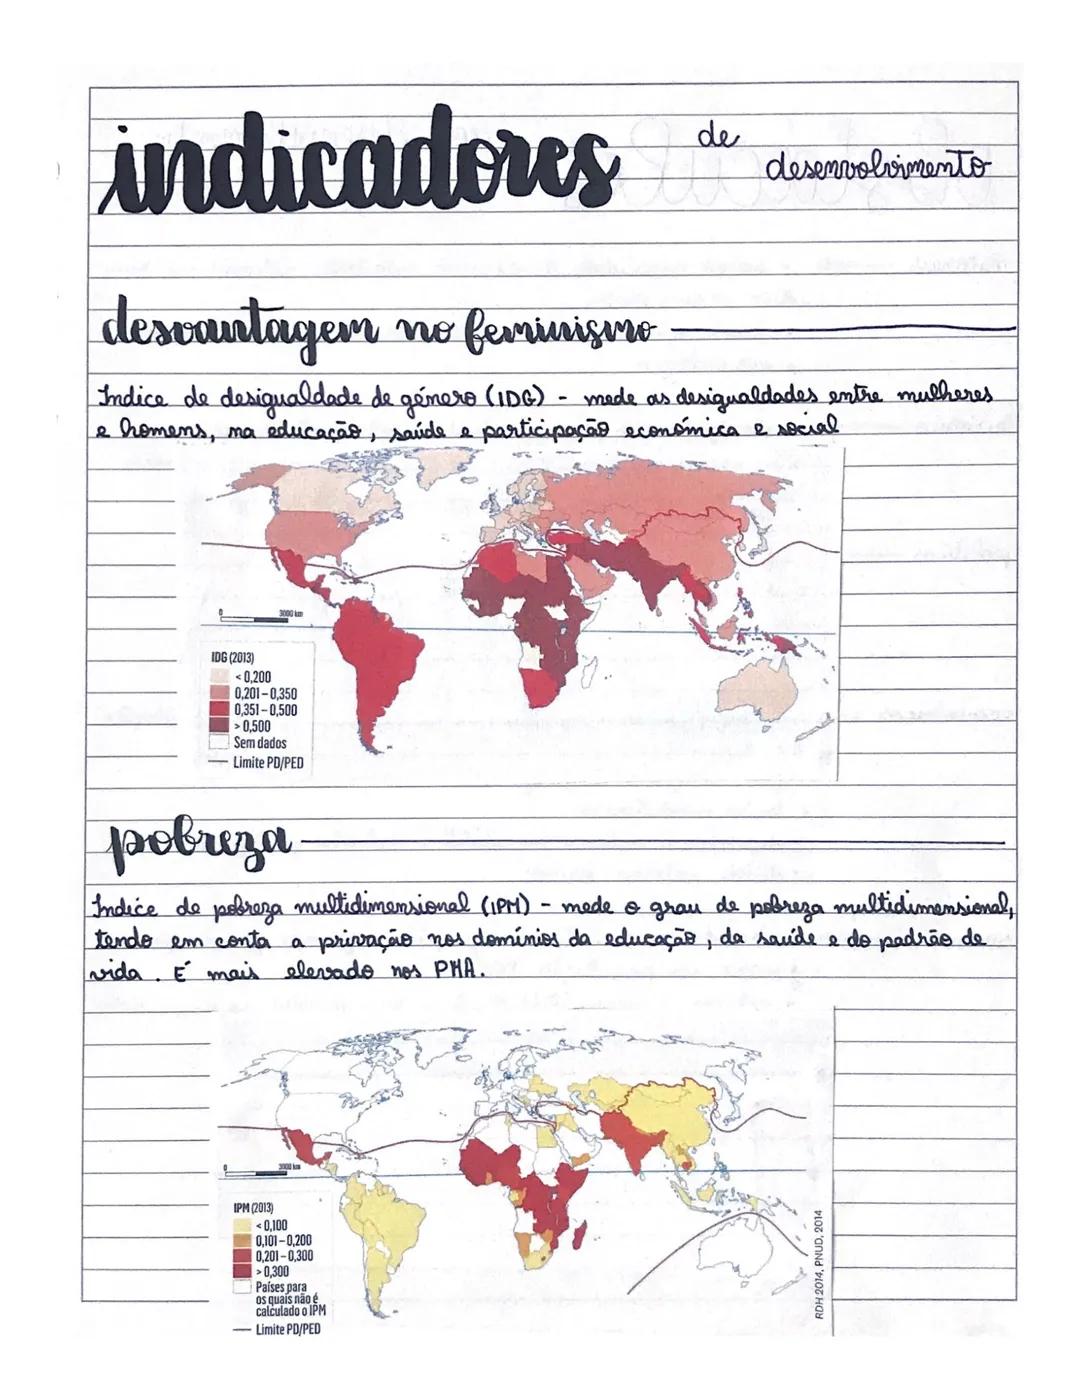 indicadores de
desenvolvimento
desvantagem no feminismo
Índice de desigualdade de género (IDG) - mede as desigualdades entre mulheres
e homens, na educação, saúde e participação económica e social
0 3000 km
IDG (2013)
< 0,200
0,201 – 0,350
0,351 – 0,500
> 0,500
Sem dados
Limite PD/PED
pobreza
Índice de pobreza multidimensional (IPM) - mede o grau de pobreza multidimensional,
tendo em conta a privação nos domínios da educação, da saúde e do padrão de
vida. É mais elevado nos PMA.
0 3000 km
IPM (2013)
< 0,100
0,101 – 0,200
0,201 – 0,300
> 0,300
Países para
os quais não é
calculado o IPM
Limite PD/PED
RDH 2014, PNUD, 2014